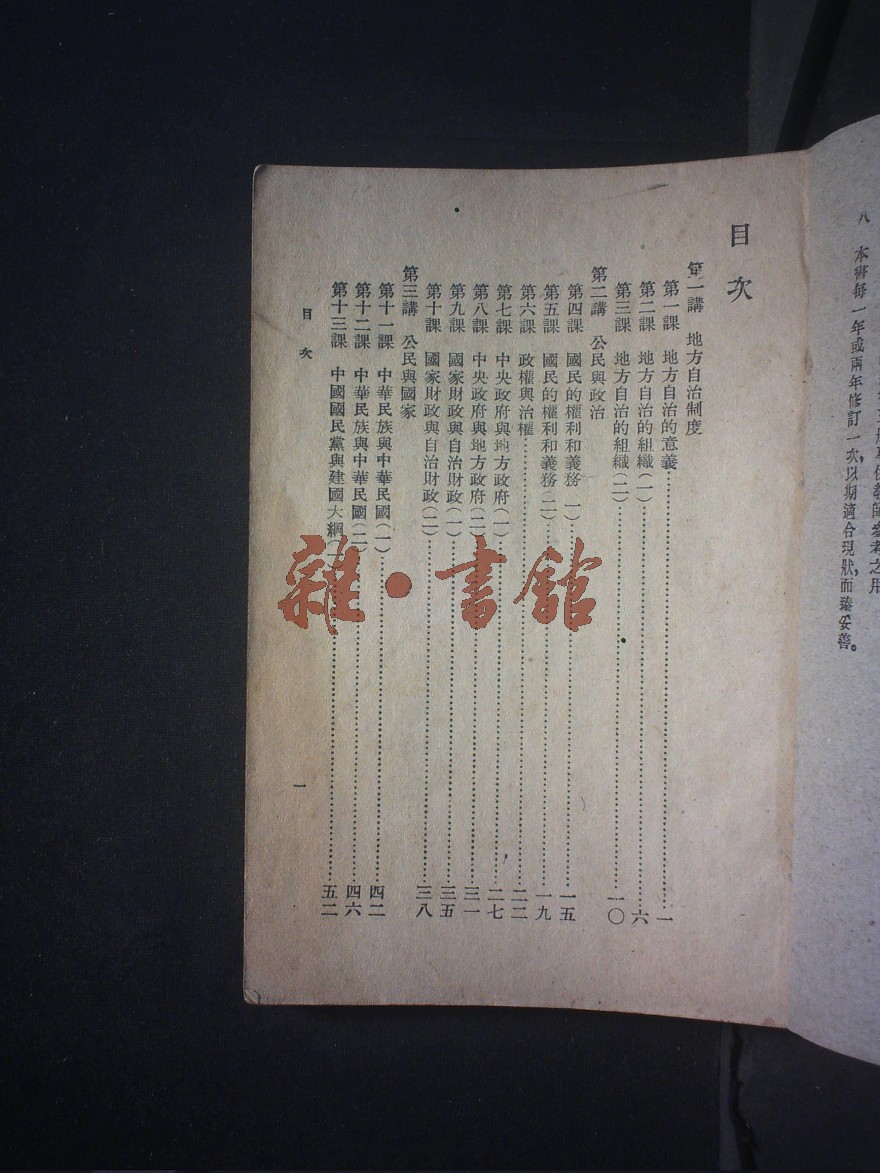 八　本書每一年或兩年修訂一次，以期適合現狀，而臻妥善。
目次
第一講　地方自治制度
第一課　地方自治的意義……一
第二課　地方自治的組織(一)……六
第三課　地方自治的組織(二)……一〇
第二講　公民與政治
第四課　國民的權利和義務(一)……一五
第五課　國民的權利和義務(二)……一九
第六課　政權與治權……二二
第七課　中央政府與地方政府(一)……二七
第八課　中央政府與地方政府(二)……三一
第九課　國家財政與自治財政(一)……三五
第十課　國家財政與自治財政(二)……三八
第三講　公民與國家
第十一課　中華民族與中華民國(一)……四二
第十二課　中華民族與中華民國(二)……四六
第十三課　中國國民黨與建國大綱(一)……五二
目次
一
雜·書館